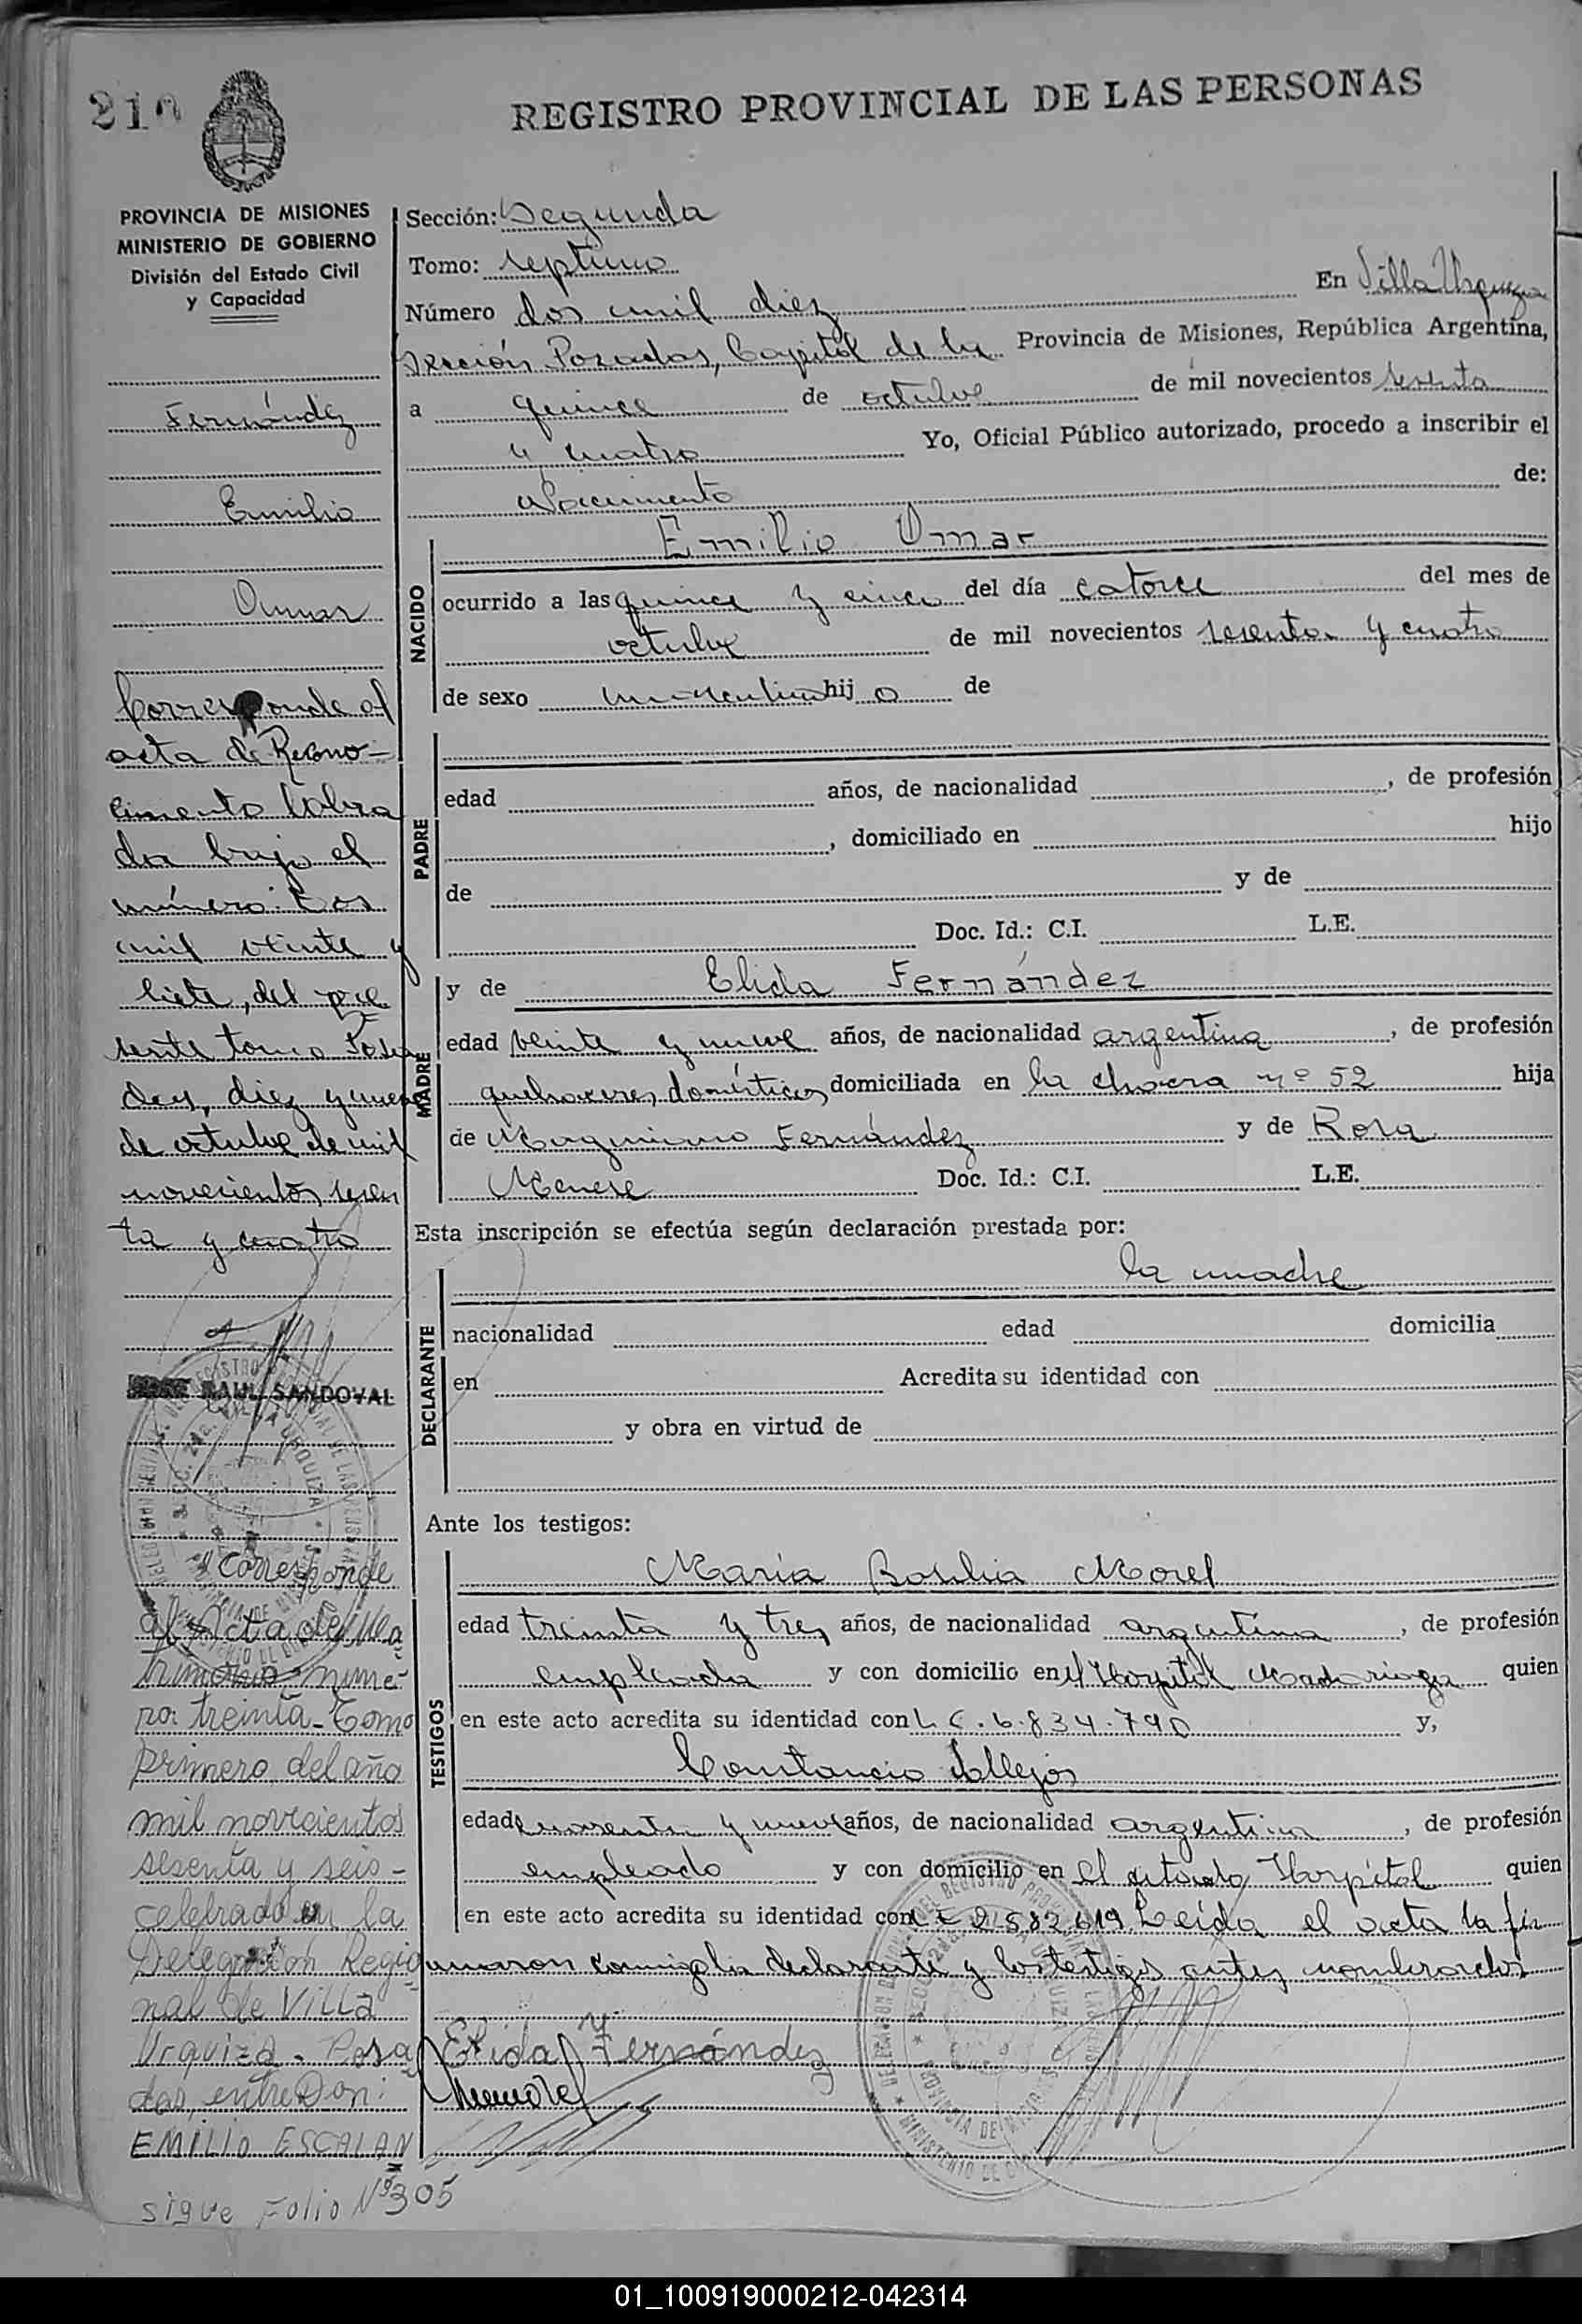 210
REGISTRO PROVINCIAL DE LAS PERSONAS
PROVINCIA DE MISIONES
MINISTERIO DE GOBIERNO
División del Estado Civil
y Capacidad
Fernández
Emilio
Omar
Corresponde al
acta de Recono-
cimiento labra
da bajo el
número: Dos
mil veinte y
siete, del pre
sente tomo Posa
das, diez y nueve
de octubre de mil
novecientos sesen
ta y cuatro
RAUL SANDOVAL
Corresponde
al Acta de Ma
trimonio núme-
ro: treinta - Tomo
primero del año
mil novecientos
sesenta y seis -
celebrado en la
Delegación Regio
nal de Villa
Urquiza - Posa
das, entre Don:
EMILIO ESCALAN
sigue Folio Nº 305
Sección: Segunda
Tomo: septimo
Número dos mil diez En Villa Urquiza
Sección Posadas, Capital de la Provincia de Misiones, República Argentina,
a quince de octubre de mil novecientos sesenta
y cuatro Yo, Oficial Público autorizado, procedo a inscribir el
Nacimiento de:
NACIDO
Emilio Omar
ocurrido a las quince y cinco del día catorce del mes de
octubre de mil novecientos sesenta y cuatro
de sexo masculino hijo de
PADRE
edad años, de nacionalidad , de profesión
, domiciliado en hijo
de y de
Doc. Id.: C.I. L.E.
MADRE
y de Elida Fernández
edad veinte y nueve años, de nacionalidad argentina , de profesión
quehaceres domésticos domiciliada en la chacra nº 52 hija
de Maximiano Fernández y de Rosa
Menese Doc. Id.: C.I. L.E.
Esta inscripción se efectúa según declaración prestada por:
DECLARANTE
la madre
nacionalidad edad domicilia
en Acredita su identidad con
y obra en virtud de
Ante los testigos:
TESTIGOS
María Morel
edad treinta y tres años, de nacionalidad argentina , de profesión
empleada y con domicilio en el Hospital Madariaga quien
en este acto acredita su identidad con L.C. 6.834.790 y,
Constancio Vallejos
edad cuarenta y nueve años, de nacionalidad argentina , de profesión
empleado y con domicilio en el citado Hospital quien
en este acto acredita su identidad con Leida el acta la fir
maron conmigo la declarante y los testigos antes nombrados
Elida Fernández